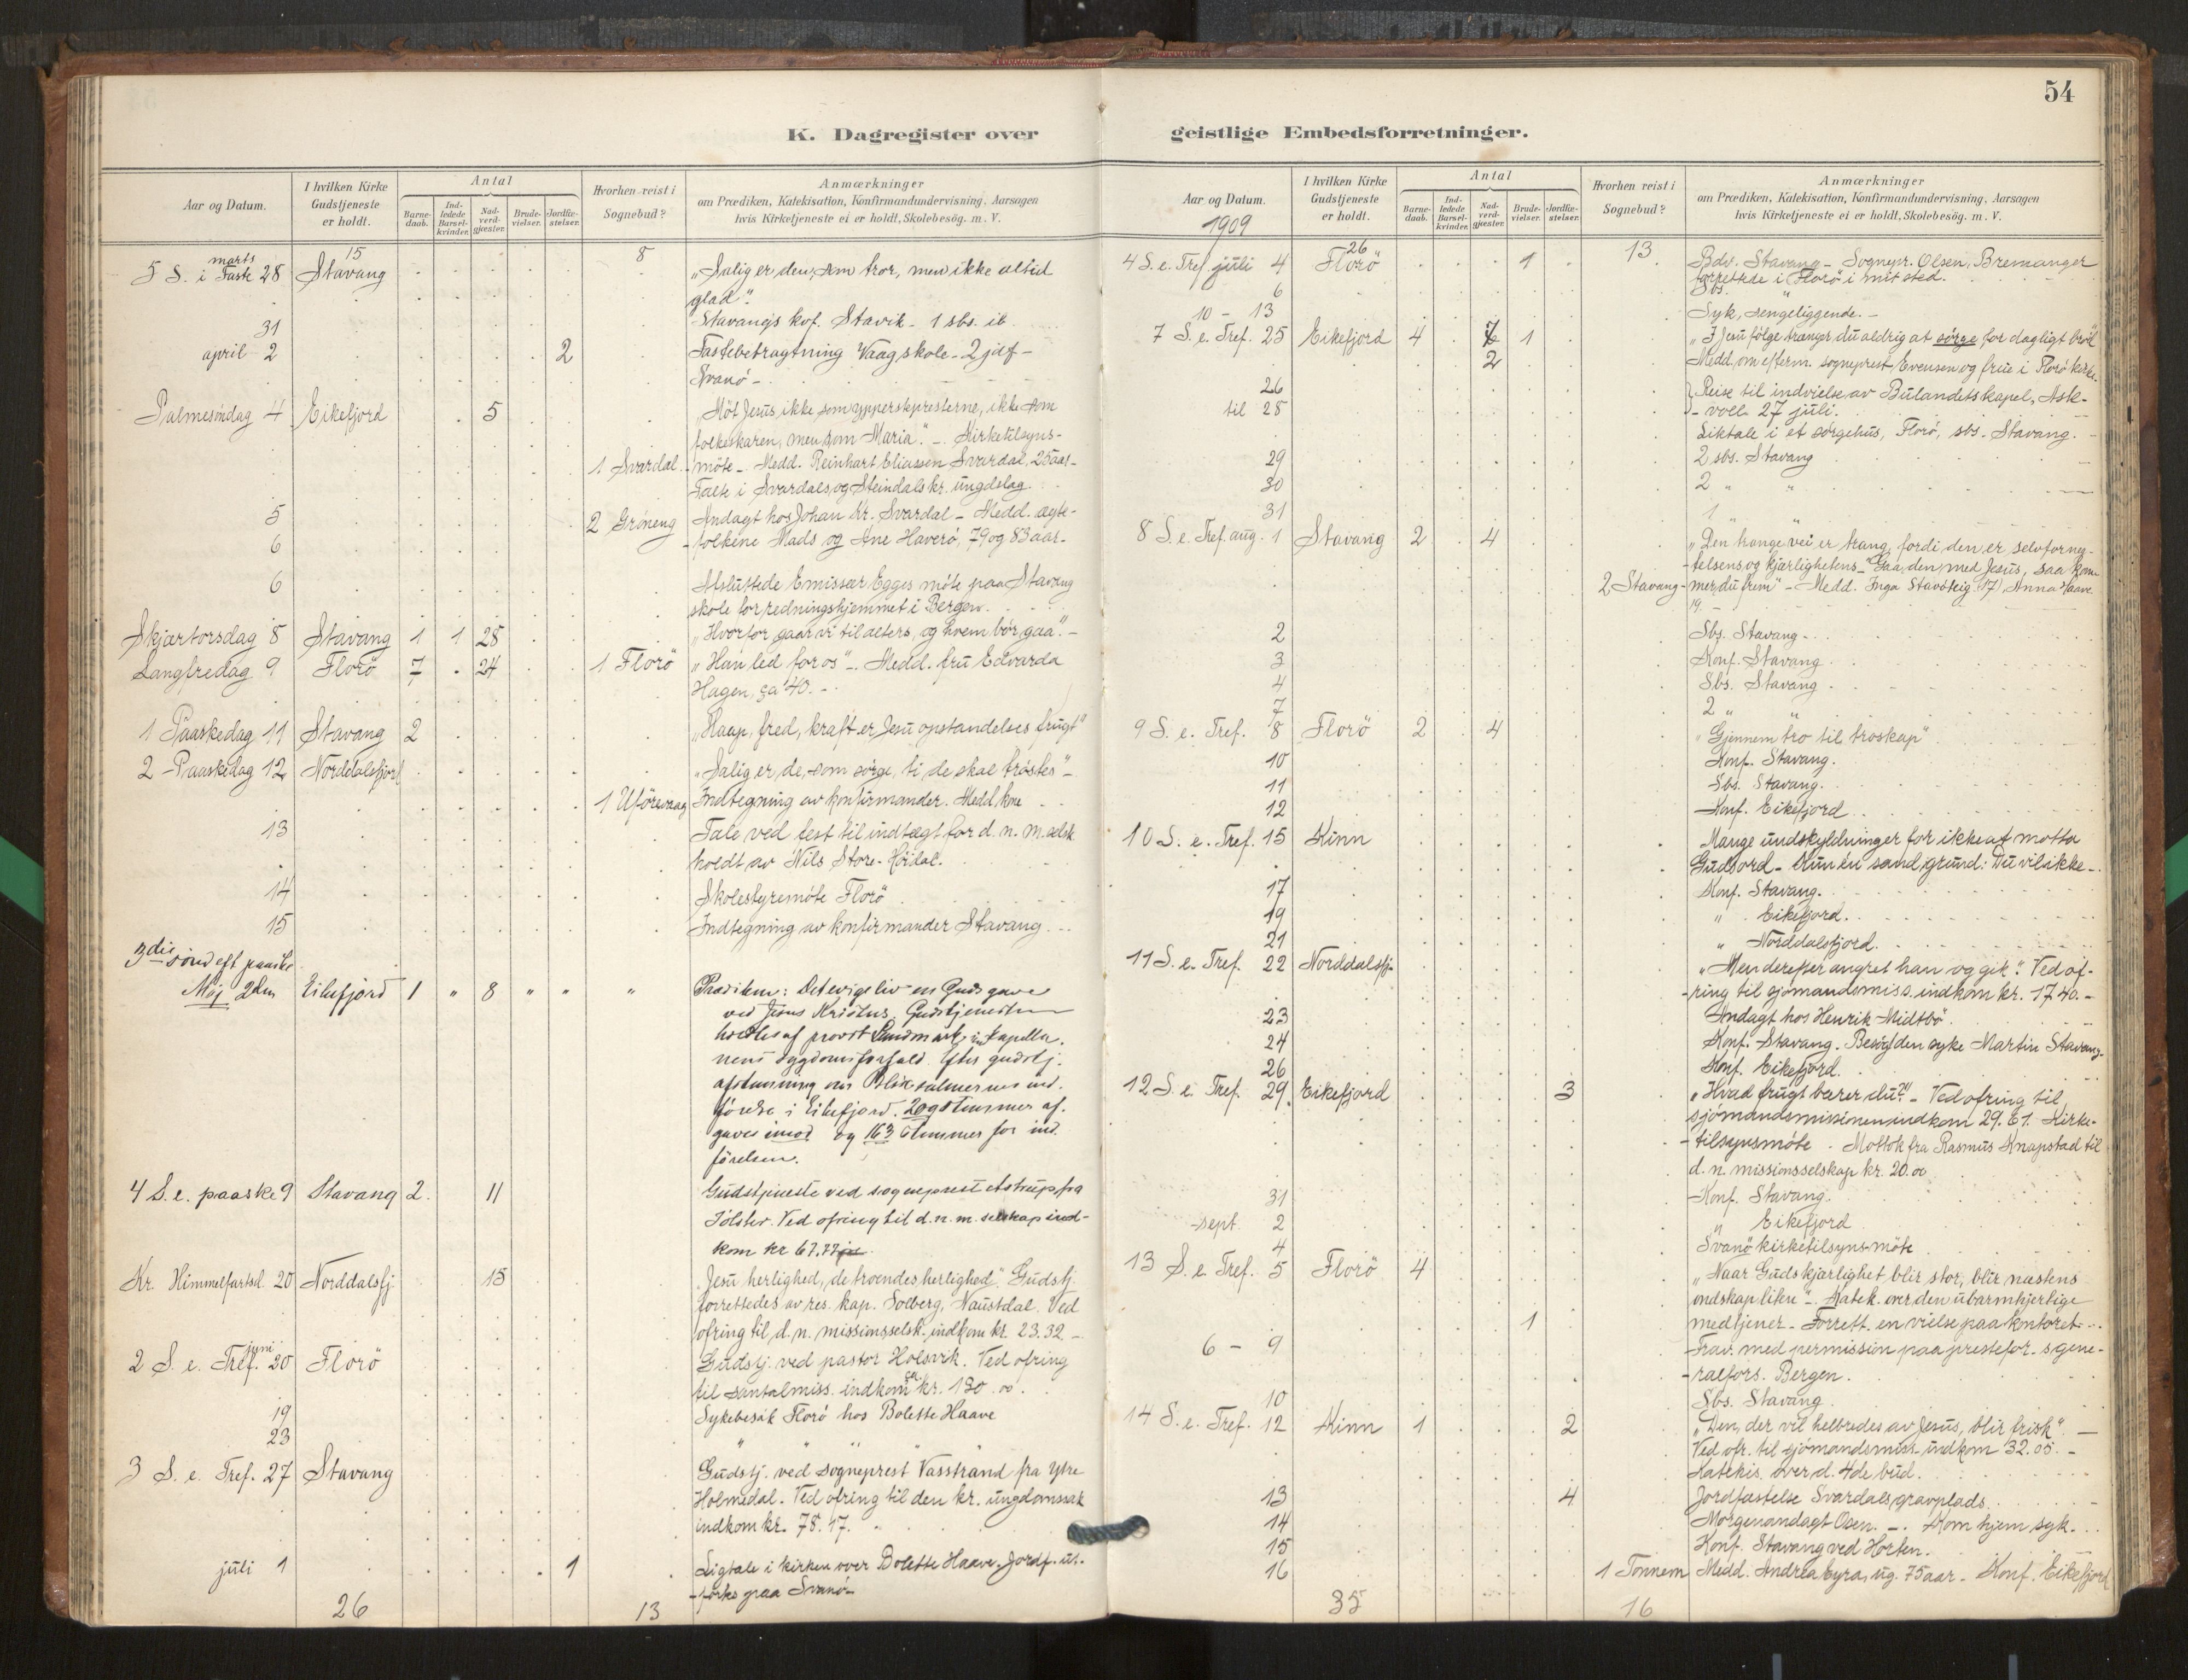 54
K. Dagregister over
Aar og Datum.
I hvilken Kirke Gudstjeneste er holdt.
Antal
Barne-daab.
Ind-ledede Barsel-kvinder.
Nad-verd-gjæster.
Brude-vielser.
Jordfæ-stelser.
Hvorhen reist i Sognebud?
Anmærkninger
om Prædiken, Katekisation, Konfirmandundervisning, Aarsagen
hvis Kirketjeneste ei er holdt, Skolebesög. m. V.
15 8
5 S. i Faste marts 28 Stavang „Salig er den, som tror, men ikke altid
glad".
31 Stavangs kof. Stavik - 1 sbs. ib.
april 2 2 Fastebetragtning Vaag skole - 2 jdf -
Svanö -
Palmesöndag 4 Eikefjord 5 „Möt Jesus, ikke som ypperstepresterne, ikke som
folkeskaren, men som Maria." - Kirketilsyns-
1 Svardal -möte - Medd. Reinhart Eliassen Svardal, 25 aar -
Tale i Svardals og Steindals kr. ungdslag.
5 2 Gröneng Andagt hos Johan Kr. Svardal - Medd. ægte-
6 -folkene Mads og Ane Haverö, 79 og 83 aar -
6 Avsluttede Emissær Egges möte paa Stavang
skole for redningshjemmet i Bergen.
Skjærtorsdag 8 Stavang 1 1 28 „Hvorfor gaar vi til alters, og hvem bör gaa". -
Langfredag 9 Florö 7 24 1 Florö „Han led for os" - Medd. fru Edvarda
Hagen, ca 40. -
1 Paaskedag 11 Stavang 2 „Haap, fred, kraft er Jesu opstandelses frugt"
2 Paaskedag 12 Norddalsfjord „Salig er de, som sörge, ti de skal tröstes" -
1 Uförevaag Indtegning av konfirmander. Medd. kone
13 Tale ved fest til indtægt for d. n. m. selsk.
holdt av Nils Store-Höidal.
14 Skolestyremöte Florö
15 Indtegning av konfirmander Stavang
3die sönd eft paaske
Maj 2den Eikefjord 1 " 8 " " " Prædiken: Det evige liv en Guds gave
ved Jesus Kristus. Gudstjenesten
holdtes af provst Lindmark, i kapella-
nens sygdomsforfald. Efter gudstj.
afstemning om Blix salmernes ind-
förelse i Eikefjord. 20 stemmer af-
gaves imod og 163 stemmer for ind-
förelsen.
4 S. e. paaske 9 Stavang 2 11 Gudstjeneste ved sogneprest Astrup fra
Jölster. Ved ofring til d. n. m. selskap ind-
kom kr 67.77
Kr. Himmelfartsd. 20 Norddalsfj. 15 „Jesu herlighed, de troendes herlighed". Gudstj.
forrettedes av res. kap. Solberg, Naustdal. Ved
ofring til d. n. missionsselsk. indkom kr. 23.32 -
2 S. e. Tref. juni 20 Florö Gudstj. ved pastor Holsvik. Ved ofring
til santalmiss. indkom ca. kr. 130.00.
19 Sykebesök Florö hos Bolette Haave
23 " " " "
3 S. e. Tref. 27 Stavang Gudstj. ved sogneprest Vasstrand fra Ytre
Holmedal. Ved ofring til den kr. ungdomssak
indkom kr. 78.17.
juli 1 1 Ligtale i kirken over Bolette Haave. Jordf. ut-
-förtes paa Svanö -
26 13
geistlige Embedsforretninger.
Aar og Datum.
1909
I hvilken Kirke Gudstjeneste er holdt.
Antal
Barne-daab.
Ind-ledede Barsel-kvinder.
Nad-verd-gjæster.
Brude-vielser.
Jordfæ-stelser.
Hvorhen reist i Sognebud?
Anmærkninger
om Prædiken, Katekisation, Konfirmandundervisning, Aarsagen
hvis Kirketjeneste ei er holdt, Skolebesög. m. V.
26 13
4 S. e. Tref. juli 4 Florö 1 Bdv. Stavang - Sognepr. Olsen, Bremanger
forrettede i Florö i mit sted.
6 Sbs. "
10 - 13 Syk, sengeliggende. -
7 S. e. Tref. 25 Eikefjord 4 7 1 „I Jesu fölge trænger du aldrig at sörge for dagligt bröd"
2 Medd. om efterm. sogneprest Evensen og frue i Florö kirke.
26 Reise til indvielse av Bulandets kapel, Ask-
til 28 -voll 27 juli.
Liktale i et sörgehus, Florö, sbs. Stavang.
29 2 sbs. Stavang
30 2 " "
31 1 "
8 S. e. Tref. aug. 1 Stavang 2 4 „Den trange vei er trang, fordi den er selvforneg-
-telsens og kjærlighetens - Gaa den med Jesus, saa kom-
2 Stavang -mer du frem" - Medd. Inga Stavöteig (17), Anna Haave
19. -
2 Sbs. Stavang -
3 Konf. Stavang
4 Sbs. Stavang -
7 2 " "
9 S. e. Tref. 8 Florö 2 4 „Gjennem tro til troskap"
10 Konf. Stavang.
11 Sbs. Stavang.
12 Konf. Eikefjord
10 S. e. Tref. 15 Kinn Mange undskyldninger for ikke at motta
Guds ord - Kun én sand grund: Du vil ikke -
17 Konf. Stavang.
19 " Eikefjord.
21 " Norddalsfjord.
11 S. e. Tref. 22 Norddalsfj. „Men derefter angret han og gik". Ved of-
-ring til sjömandsmiss. indkom kr. 17 40. -
23 Andagt hos Henrik Midtbö.
24 Konf. Stavang. Besög den syke Martin Stavang.
26 Konf. Eikefjord.
12 S. e. Tref. 29. Eikefjord 3 „Hvad frugt bærer du?" - Ved ofring til
sjömandsmissionen indkom 29.61. Kirke-
-tilsynsmöte. Mottok fra Rasmus Knapstad til
d. n. missionsselskap kr. 20.00
31 Konf. Stavang.
sept. 2 " Eikefjord
4 Svanö kirketilsynsmöte
13 S. e. Tref. 5 Florö 4 „Naar Guds kjærlighet blir stor, blir næstens
ondskap liten" - Katek. over den ubarmhjertige
1 medtjener - Forrett. en vielse paa kontoret. -
6 - 9 Frav. med permission paa prestefor.s gene-
-ralfors. Bergen.
10 Sbs. Stavang
14 S. e. Tref. 12 Kinn 1 2 „Den, der vil helbredes av Jesus, blir frisk". -
Ved ofr. til sjömandsmiss. indkom 32.05. -
Katekis. over d. 4de bud.
13 4 Jordfæstelse Svardals gravplads.
14 Morgenandagt Osen. - Kom hjem syk.
15 Konf. Stavang ved Horten.
16 1 Tonnem Medd. Andrea Eyra, ug. 75 aar - Konf. Eikefjord
35 16